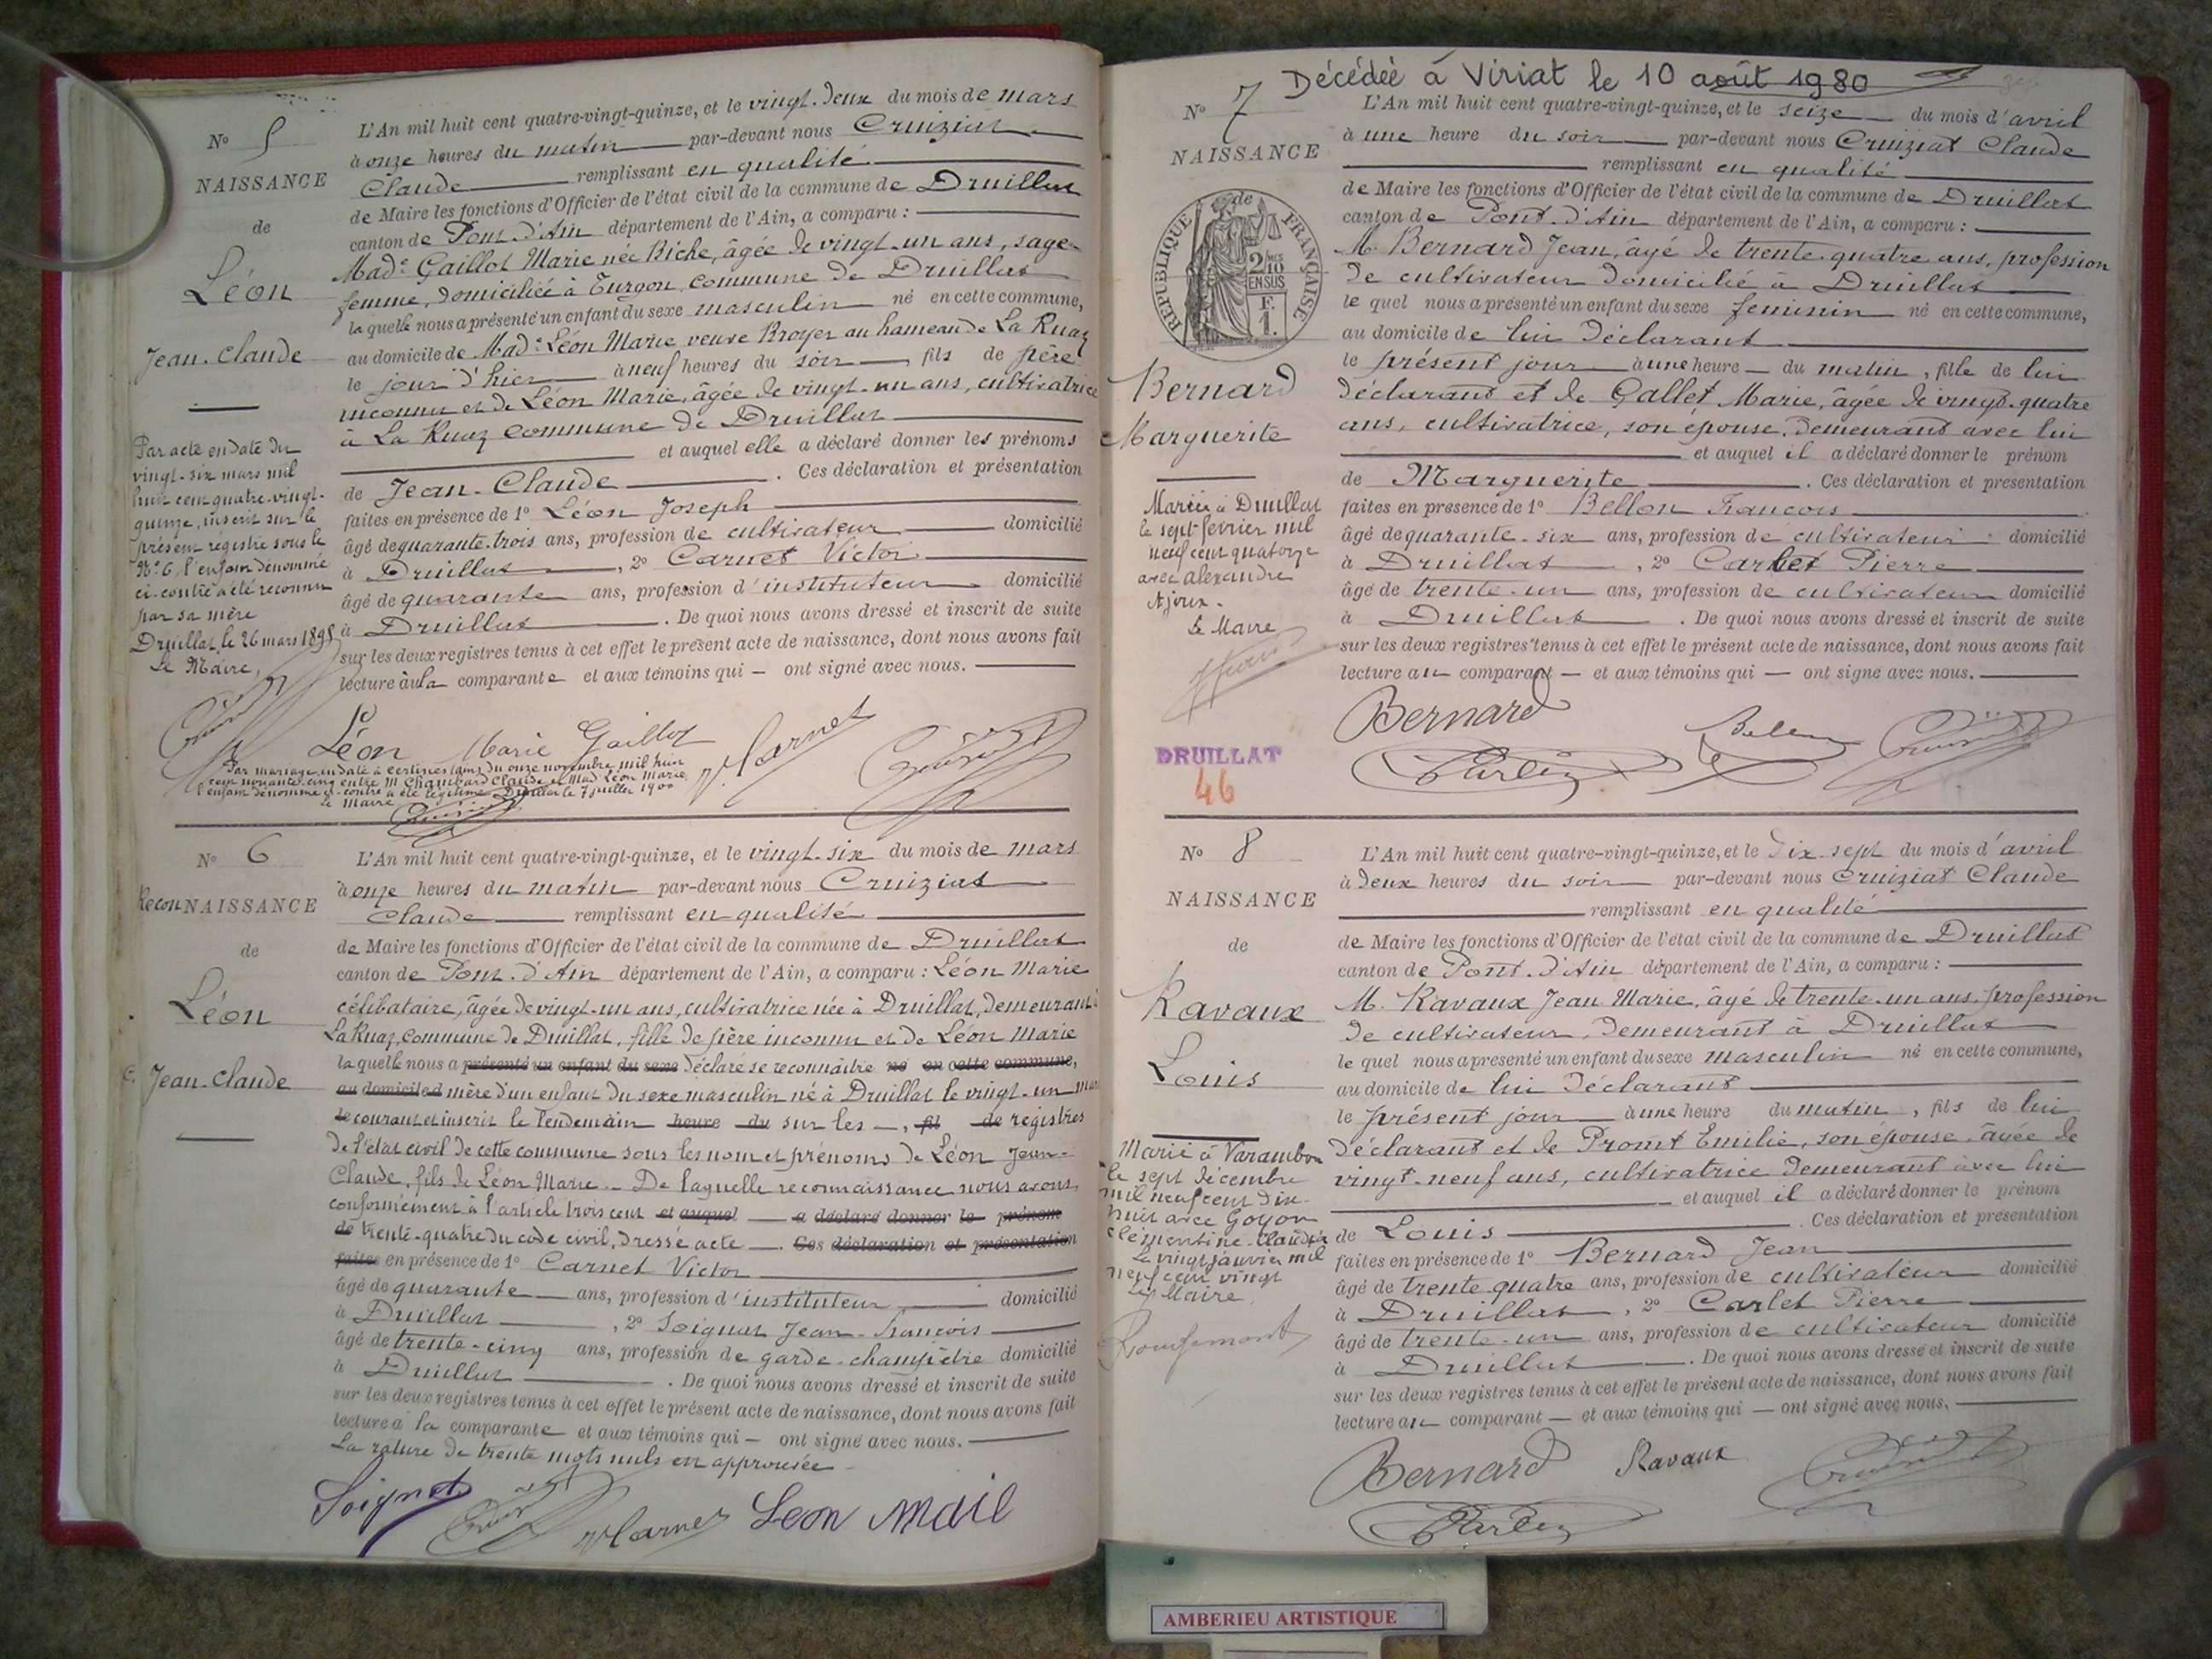 N° 5
NAISSANCE
de
Léon
Jean-Claude
Par acte en date du
vingt-six mars mil
huit cent quatre-vingt-
quinze, inscrit sur le
présent registre sous le
N° 6, l'enfant dénommé
ci-contre a été reconnu
par sa mère
Druillat, le 26 mars 1895
Le Maire,
L'An mil huit cent quatre-vingt-quinze, et le vingt-deux du mois de mars
à onze heures du matin par-devant nous Cruiziat
Claude remplissant en qualité
de Maire les fonctions d'Officier de l'état civil de la commune de Druillat
canton de Pont-d'Ain département de l'Ain, a comparu :
Made Gaillot Marie née Biche, âgée de vingt-un ans, sage-
femme, domiciliée à Turgon, commune de Druillat
laquelle nous a présenté un enfant du sexe masculin né en cette commune,
au domicile de Made Léon Marie veuve Broyer au hameau de La Ruaz
le jour d'hier à neuf heures du soir fils de père
inconnu et de Léon Marie, âgée de vingt-un ans, cultivatrice
à La Ruaz commune de Druillat
et auquel elle a déclaré donner les prénoms
de Jean-Claude . Ces déclaration et présentation
faites en présence de 1° Léon Joseph
âgé de quarante-trois ans, profession de cultivateur domicilié
à Druillat , 2° Carnet Victor
âgé de quarante ans, profession d'instituteur domicilié
à Druillat . De quoi nous avons dressé et inscrit de suite
sur les deux registres tenus à cet effet le présent acte de naissance, dont nous avons fait
lecture à la comparante et aux témoins qui — ont signé avec nous.
Léon Marie Gaillot V. Carnet Cruiziat
Par mariage en date à Certines (Ain) du onze novembre mil huit
cent nonante-cinq entre M. Chambard Claude et Mad. Léon Marie
l'enfant dénommé ci-contre a été légitimé. Druillat le 7 juillet 1900
Le Maire
N° 6
ReconNAISSANCE
de
Léon
Jean-Claude
L'An mil huit cent quatre-vingt-quinze, et le vingt-six du mois de mars
à onze heures du matin par-devant nous Cruiziat
Claude remplissant en qualité
de Maire les fonctions d'Officier de l'état civil de la commune de Druillat
canton de Pont-d'Ain département de l'Ain, a comparu : Léon Marie
célibataire, âgée de vingt-un ans, cultivatrice née à Druillat, demeurant à
La Ruaz, commune de Druillat, fille de père inconnu et de Léon Marie
laquelle nous a présenté un enfant du sexe déclaré se reconnaître né en cette commune,
au domicile d mère d'un enfant du sexe masculin né à Druillat le vingt-un mars
le courant et inscrit le lendemain heure du sur les —, fil de registres
de l'état civil de cette commune sous les nom et prénoms de Léon Jean-
Claude, fils de Léon Marie. — De laquelle reconnaissance nous avons,
conformément à l'article trois cent et auquel — a déclaré donner le prénom
de trente-quatre du code civil, dressé acte —. Ces déclaration et présentation
faites en présence de 1° Carnet Victor
âgé de quarante ans, profession d'instituteur domicilié
à Druillat , 2° Soignat Jean-François
âgé de trente-cinq ans, profession de garde-champêtre domicilié
à Druillat . De quoi nous avons dressé et inscrit de suite
sur les deux registres tenus à cet effet le présent acte de naissance, dont nous avons fait
lecture à la comparante et aux témoins qui — ont signé avec nous.
La rature de trente mots nuls est approuvée
Soignat Cruiziat V. Carnet Leon Marie
Décédée à Viriat le 10 août 1980
N° 7
NAISSANCE
de
RÉPUBLIQUE FRANÇAISE
2/10 EN SUS
F.
1.
Bernard
Marguerite
Mariée à Druillat
le sept février mil
neuf cent quatorze
avec Alexandre
Ajoux.
Le Maire
DRUILLAT
46
L'An mil huit cent quatre-vingt-quinze, et le seize du mois d'avril
à une heure du soir par-devant nous Cruiziat Claude
remplissant en qualité
de Maire les fonctions d'Officier de l'état civil de la commune de Druillat
canton de Pont-d'Ain département de l'Ain, a comparu :
M. Bernard Jean, âgé de trente-quatre ans, profession
de cultivateur domicilié à Druillat
lequel nous a présenté un enfant du sexe feminin né en cette commune,
au domicile de lui déclarant
le présent jour à une heure du matin, fille de lui
déclarant et de Gallet Marie, âgée de vingt-quatre
ans, cultivatrice, son épouse, demeurant avec lui
et auquel il a déclaré donner le prénom
de Marguerite . Ces déclaration et présentation
faites en présence de 1° Bellon François
âgé de quarante-six ans, profession de cultivateur domicilié
à Druillat , 2° Carlet Pierre
âgé de trente-un ans, profession de cultivateur domicilié
à Druillat . De quoi nous avons dressé et inscrit de suite
sur les deux registres tenus à cet effet le présent acte de naissance, dont nous avons fait
lecture au comparant — et aux témoins qui — ont signé avec nous.
Bernard Bellon Cruiziat
Carlet
N° 8
NAISSANCE
de
Ravaux
Louis
Marié à Varambon
le sept décembre
mil neuf cent dix-
huit avec Goyon
Clémentine-Claudia
Le vingt janvier mil
neuf cent vingt
Le Maire
Rougemont
L'An mil huit cent quatre-vingt-quinze, et le dix-sept du mois d'avril
à deux heures du soir par-devant nous Cruiziat Claude
remplissant en qualité
de Maire les fonctions d'Officier de l'état civil de la commune de Druillat
canton de Pont-d'Ain département de l'Ain, a comparu :
M. Ravaux Jean Marie, âgé de trente-un ans, profession
de cultivateur, demeurant à Druillat
lequel nous a présenté un enfant du sexe masculin né en cette commune,
au domicile de lui déclarant
le présent jour à une heure du matin, fils de lui
déclarant et de Promt Emilie, son épouse, âgée de
vingt-neuf ans, cultivatrice demeurant avec lui
et auquel il a déclaré donner le prénom
de Louis . Ces déclaration et présentation
faites en présence de 1° Bernard Jean
âgé de trente-quatre ans, profession de cultivateur domicilié
à Druillat , 2° Carlet Pierre
âgé de trente-un ans, profession de cultivateur domicilié
à Druillat . De quoi nous avons dressé et inscrit de suite
sur les deux registres tenus à cet effet le présent acte de naissance, dont nous avons fait
lecture au comparant — et aux témoins qui — ont signé avec nous.
Bernard Ravaux Cruiziat
Carlet
AMBERIEU ARTISTIQUE